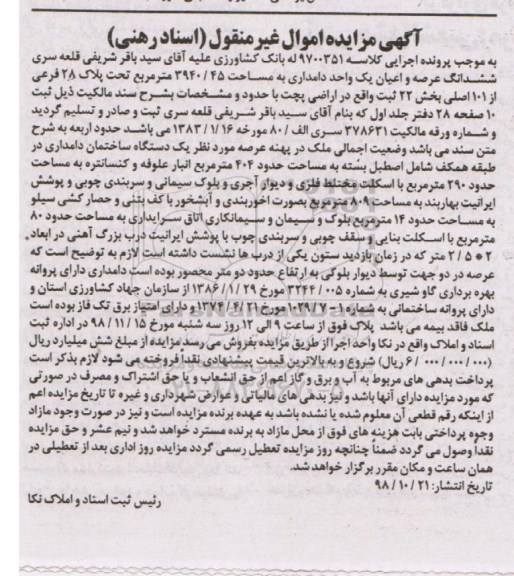 آگهی مزایده اموال غیر منقول (اسناد رهنی)
به موجب پرونده اجرایی کلاسه ۹۷۰۰۳۵۱ له بانک کشاورزی علیه آقای سید باقر شریفی قلعه سری
ششدانگ عرصه و اعیان یک واحد دامداری به مساحت ۴۵ / ۳۹۴۰ مترمربع تحت پلاک ۲۸ فرعی
از ۱۰۱ اصلی بخش ۲۲ ثبت واقع در اراضی پچت با حدود و مشخصات بشرح سند مالکیت ذیل ثبت
۱۰ صفحه ۲۸ دفتر جلد اول که بنام آقای سید باقر شریفی قلعه سری ثبت و صادر و تسلیم گردید
و شماره ورقه مالکیت ۳۷۸۶۳۱ سری الف / ۸۰ مورخه ۱۶ / ۱ / ۱۳۸۳ می باشد حدود اربعه به شرح
متن سند می باشد وضعیت اجمالی ملک در پهنه عرصه مورد نظر یک دستگاه ساختمان دامداری در
طبقه همکف شامل اصطبل بسته به مساحت حدود ۴۰۴ مترمربع انبار علوفه و کنسانتره به مساحت
حدود ۲۹۰ مترمربع با اسکلت مختلط فلزی و دیوار آجری و بلوک سیمانی و سربندی چوبی و پوشش
ایرانیت بهاربند به مساحت ۸۰۹ مترمربع بصورت آخوربندی و آبشخور با کف بتنی و حصار کشی سیلو
به مساحت حدود ۱۴ مترمربع بلوک و سیمان و سیمانکاری اتاق سرایداری به مساحت حدود ۸۰
مترمربع با اسکلت بنایی و سقف چوبی و سربندی چوب با پوشش ایرانیت درب بزرگ آهنی در ابعاد
۲ * ۵ / ۲ متر که در زمان بازدید ستون یکی از درب ها نشست داشته است لازم به توضیح است که
عرصه در دو جهت توسط دیوار بلوکی به ارتفاع حدود دو متر محصور بوده است دامداری دارای پروانه
بهره برداری گاو شیری به شماره ۰۰۵ / ۳۲۴۴ مورخ ۲۹ / ۱ / ۱۳۸۶ از سازمان جهاد کشاورزی استان و
دارای پروانه ساختمانی به شماره مورخ ۲۱ / ۴ / ۱۳۷۴ و دارای امتیاز برق تک فاز بوده است
ملک فاقد بیمه می باشد پلاک فوق از ساعت ۹ الی ۱۲ روز سه شنبه مورخ ۱۵ / ۱۱ / ۹۸ در اداره ثبت
اسناد و املاک واقع در نکا واحد اجرا از طریق مزایده بفروش می رسد مزایده از مبلغ شش میلیارد ریال
(۰۰۰ / ۰۰۰ / ۰۰۰ / ۶ ریال) شروع و به بالاترین قیمت پیشنهادی نقدا فروخته می شود لازم بذکر است
پرداخت بدهی های مربوط به آب و برق و گاز اعم از حق انشعاب و یا حق اشتراک و مصرف در صورتی
که مورد مزایده دارای آنها باشد و نیز بدهی های مالیاتی و عوارض شهرداری و غیره تا تاریخ مزایده اعم
از اینکه رقم قطعی آن معلوم شده یا نشده باشد به عهده برنده مزایده است و نیز در صورت وجود مازاد
وجوه پرداختی بابت هزینه های فوق از محل مازاد به برنده مسترد خواهد شد و نیم عشر و حق مزایده
نقدا وصول می گردد ضمناً چنانچه روز مزایده تعطیل رسمی گردد مزایده روز اداری بعد از تعطیلی در
همان ساعت و مکان مقرر برگزار خواهد شد.
تاریخ انتشار: ۲۱ / ۱۰ / ۹۸
رئیس ثبت اسناد و املاک نکا